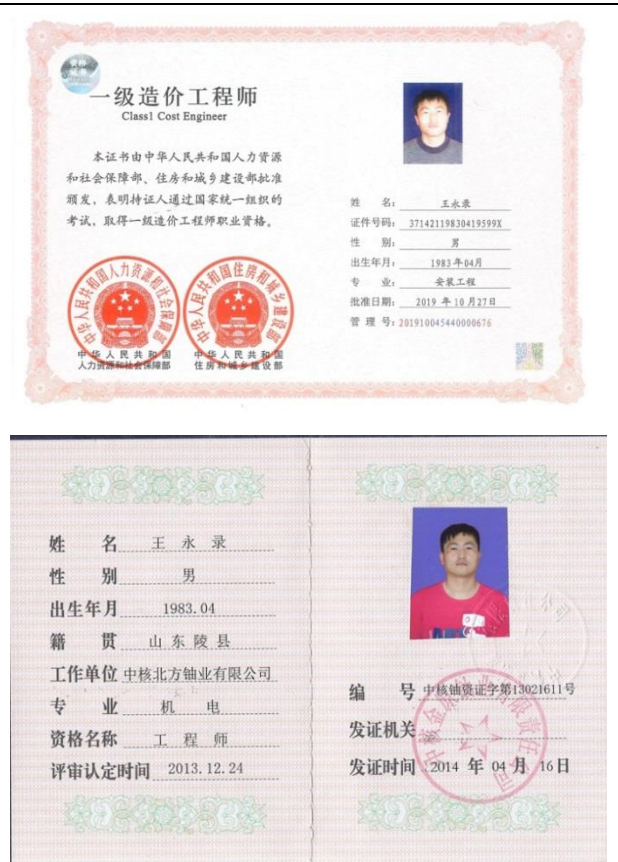 资格
证书
一级造价工程师
Class1 Cost Engineer
本证书由中华人民共和国人力资源
和社会保障部、住房和城乡建设部批准
颁发，表明持证人通过国家统一组织的
考试，取得一级造价工程师职业资格。
中华人民共和国人力资源和社会保障部
中华人民共和国住房和城乡建设部
中华人民共和国
人力资源和社会保障部
中华人民共和国
住房和城乡建设部
姓 名：王永录
证件号码：37142119830419599X
性 别：男
出生年月：1983年04月
专 业：安装工程
批准日期：2019 年 10月27日
管 理 号：201910045440000676
姓 名 王永录
性 别 男
出生年月 1983.04
籍 贯 山东陵县
工作单位 中核北方铀业有限公司
专 业 机 电
资格名称 工程师
评审认定时间 2013.12.24
编 号 中核铀资证字第13021611号
发证机关
中核金原铀业有限责任公司
发证时间 2014 年 04 月 16日